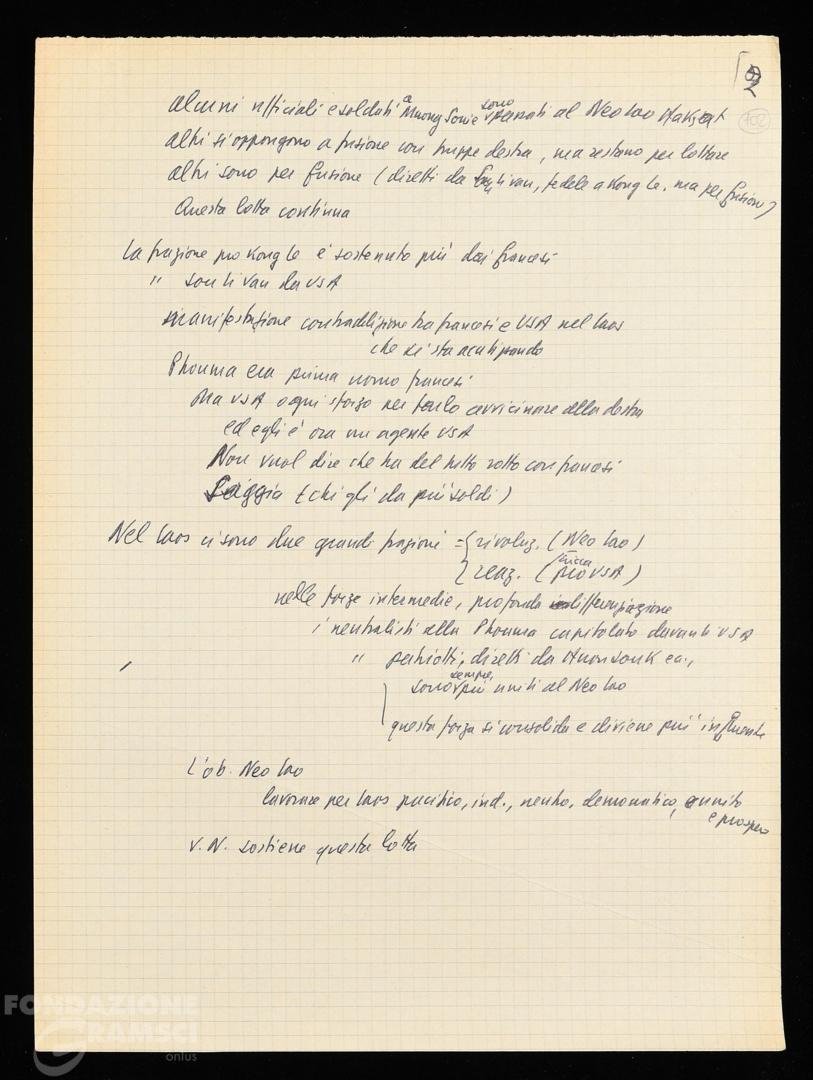 2
102
alcuni ufficiali e soldati a Muong Soui e sono passati al Neo Lao Haksat
altri si oppongono a fusione con truppe destra, ma restano per lottare
altri sono per fusione (diretti da Soulivan, fedele a Kong Le, ma per fusione)
Questa lotta continua
La frazione pro Kong Le è sostenuto più dai francesi
" Soulivan da USA
manifestazione contraddizione tra francesi e USA nel Laos
che si sta acutizzando
Phouma era prima uomo francesi
Ma USA ogni sforzo per farlo avvicinare alla destra
ed egli è ora un agente USA
Non vuol dire che ha del tutto rotto con francesi
(chi gli da più soldi)
Nel Laos ci sono due grandi frazioni = { rivoluz. (Neo Lao)
{ reaz. (pro USA)
nelle forze intermedie, profonda differenziazione
i neutralisti alla Phouma capitolato davanti USA
" patriotti, diretti da ecc.,
sono sempre più uniti al Neo Lao
questa forza si consolida e diviene più influente
L'ob. Neo Lao
lavorare per Laos pacifico, ind., neutro, democratico, unito
e prospero
V.N. sostiene questa lotta
FONDAZIONE
GRAMSCI
onlus